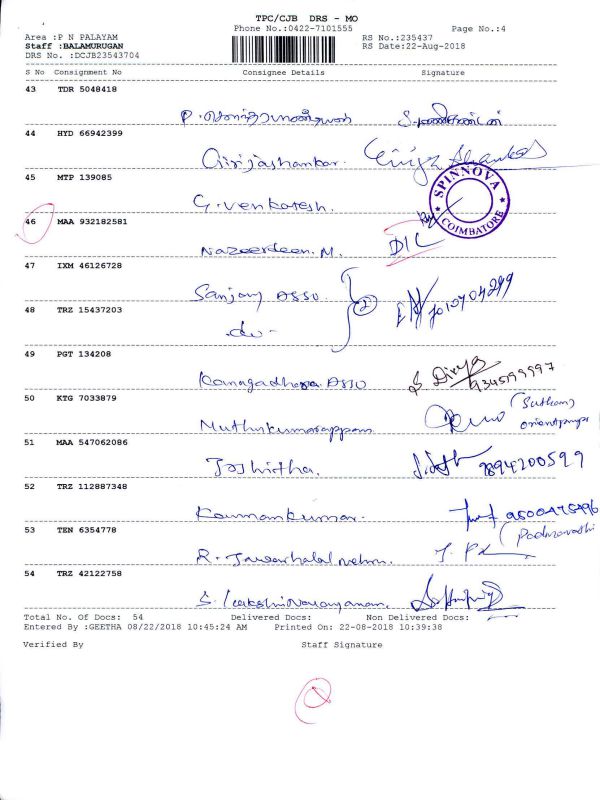 TPC/CJB DRS - MO
Phone No.:0422-7101555 Page No.:4
Area :P N PALAYAM RS No.:235437
Staff :BALAMURUGAN RS Date:22-Aug-2018
DRS No. :DCJB23543704
S No Consignment No Consignee Details Signature
43 TDR 5048418
44 HYD 66942399
Girijashankar.
45 MTP 139085
SPINNOVA COIMBATORE
G. Venkatesh.
46 MAA 932182581
Nazeerdeen. M. DIC
47 IXM 46126728
Sanjay Asso 2
48 TRZ 15437203
-do-
49 PGT 134208
Kanagadhara Asso S. Divya
50 KTG 7033879
Muthukumarappan
51 MAA 547062086
Joshitha. 9894200599
52 TRZ 112887348
Kannankumar.
53 TEN 6354778
R. Jawarhalal nehru.
54 TRZ 42122758
S. Lakshminarayanan.
Total No. Of Docs: 54 Delivered Docs: Non Delivered Docs:
Entered By :GEETHA 08/22/2018 10:45:24 AM Printed On: 22-08-2018 10:39:38
Verified By Staff Signature